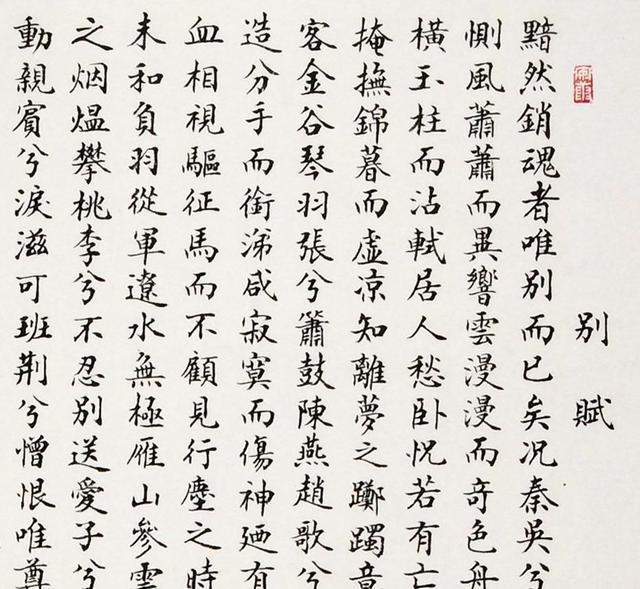 別賦
黯然銷魂者唯別而已矣况秦吳兮
惻風蕭蕭而異響雲漫漫而奇色舟
橫玉柱而沾軾居人愁卧怳若有亡
掩撫錦暮而虛凉知離夢之躑躅意
客金谷琴羽張兮簫鼓陳燕趙歌兮
造分手而銜涕咸寂寞而傷神廼有
血相視驅征馬而不顧見行塵之時
未和負羽從軍遼水無極雁山參雲
之烟煴攀桃李兮不忍別送愛子兮
動親賓兮淚滋可班荆兮憎恨唯尊